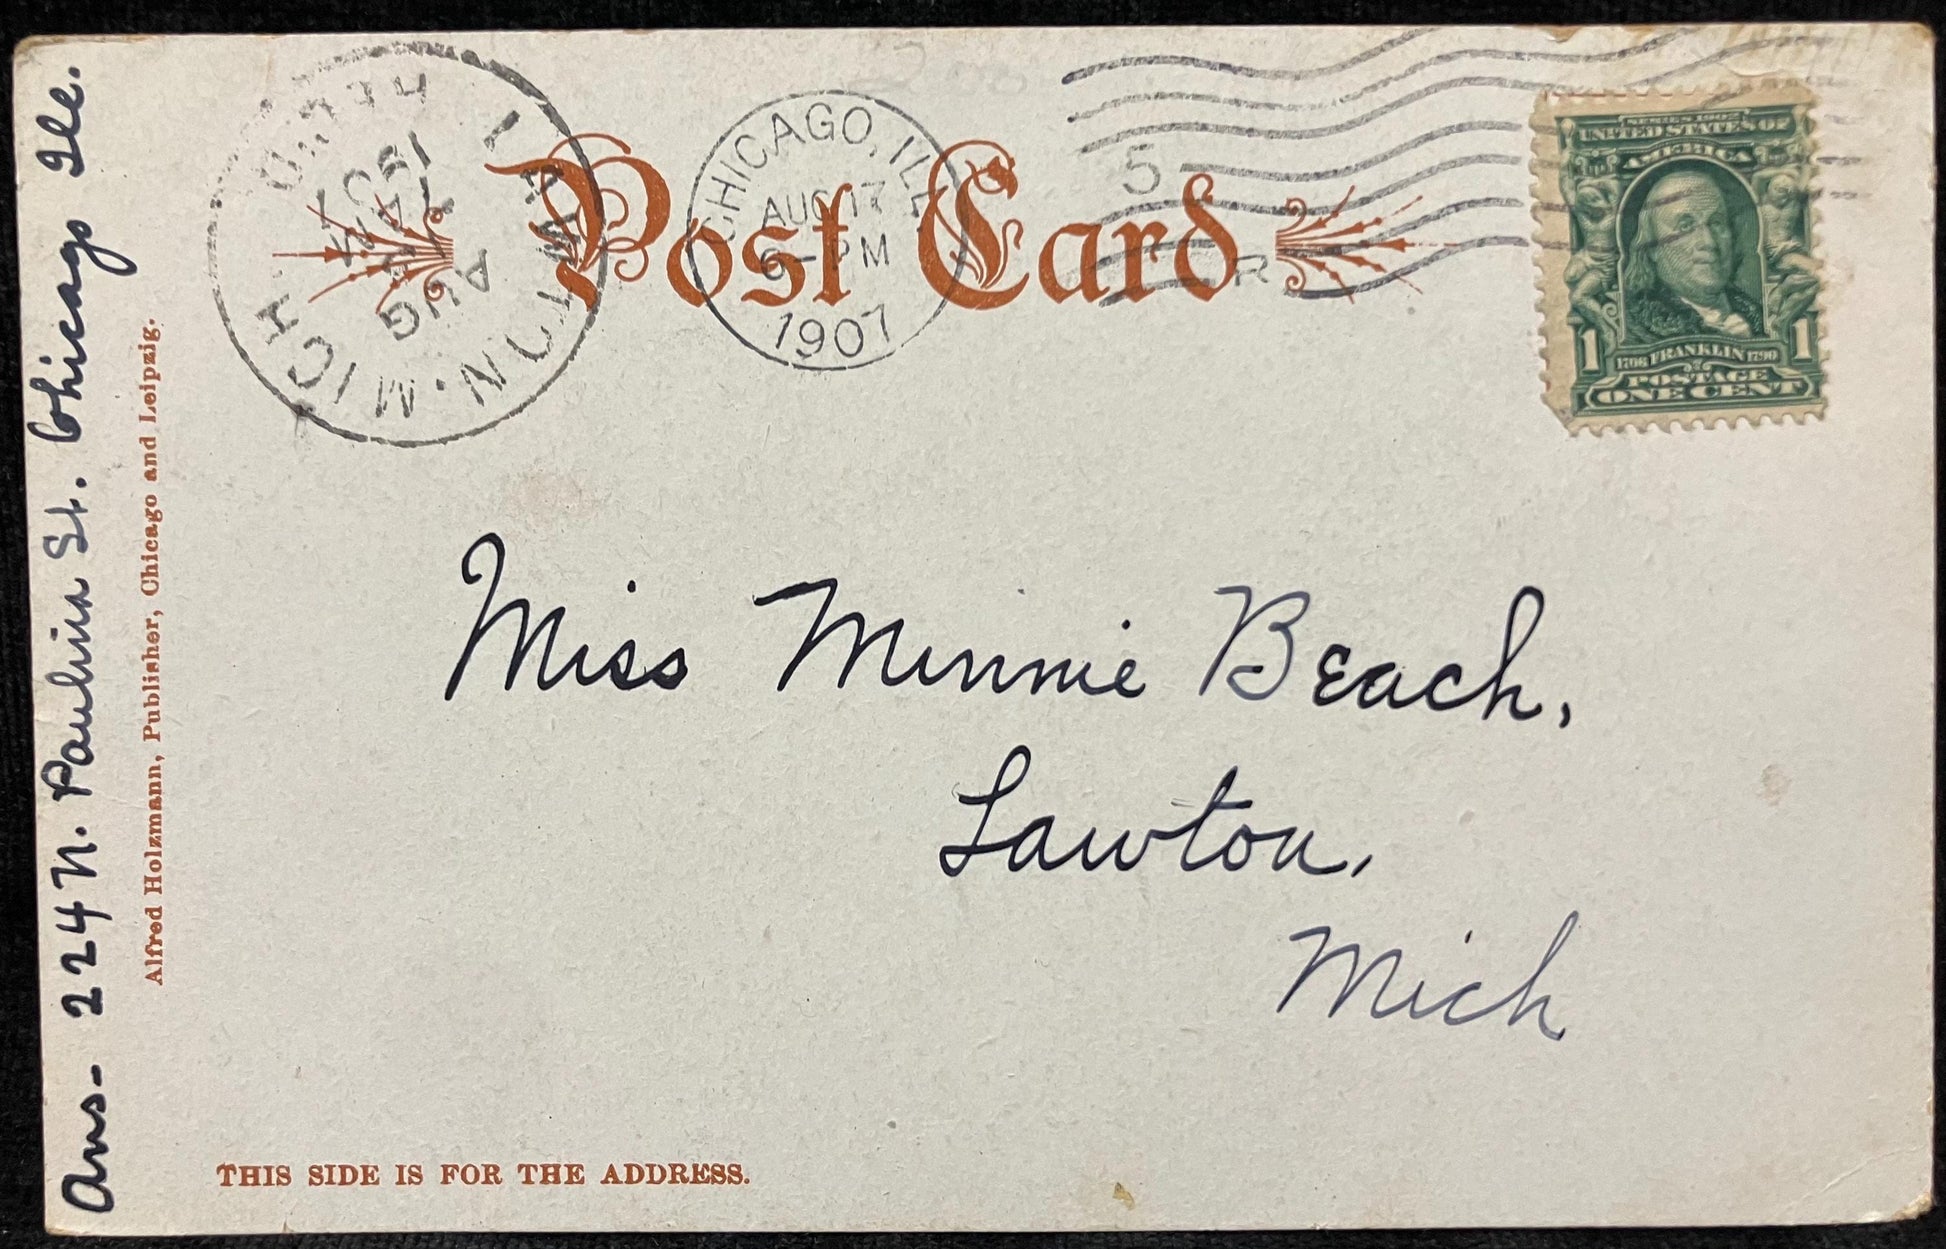 Post Card
CHICAGO, ILL
AUG 17
6-PM
1907
5
R
LAWTON. MICH.
REC'D
AUG
7AM
1907
SERIES 1902
UNITED STATES OF
AMERICA
1706 FRANKLIN 1790
1 1
POSTAGE
ONE CENT
Miss Minnie Beach,
Lawton,
Mich
Ans- 224 N. Paulina St. Chicago Ill.
Alfred Holzmann, Publisher, Chicago and Leipzig.
THIS SIDE IS FOR THE ADDRESS.